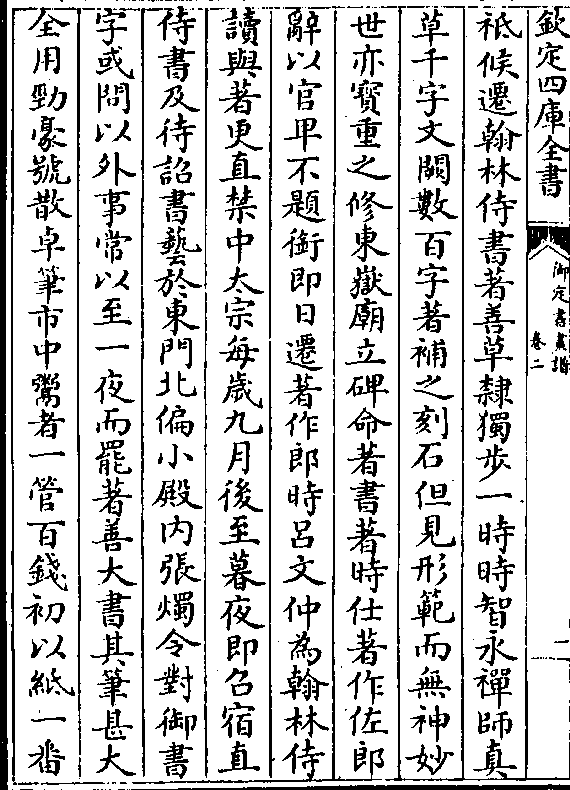 欽定四庫全書
御定書畫譜
卷二
祇候遷翰林侍書著善草隸獨步一時時智永禪師真
草千字文闕數百字著補之刻石但見形範而無神妙
世亦寳重之修東嶽廟立碑命著書著時仕著作佐郎
辭以官卑不題銜即日遷著作郎時呂文仲為翰林侍
讀與著更直禁中太宗每歲九月後至暮夜即召宿直
侍書及待詔書藝於東門北偏小殿内張燭令對御書
字或問以外事常以至一夜而罷著善大書其筆甚大
全用勁豪號散卓筆市中鬻者一管百錢初以紙一番